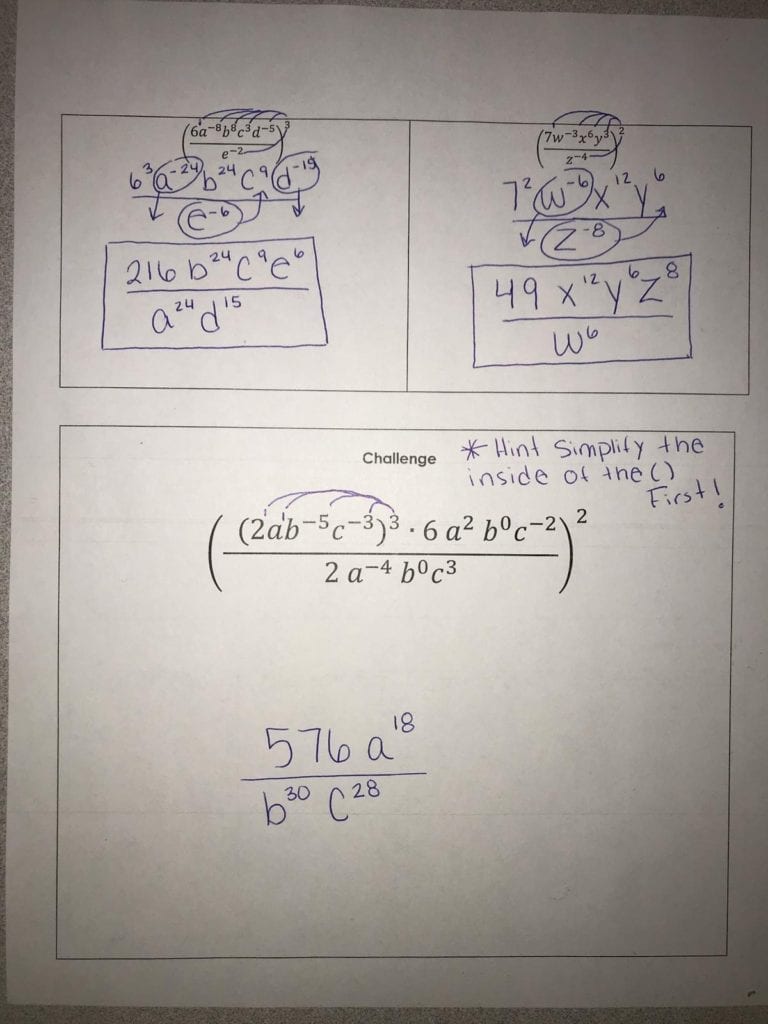 (6a⁻⁸b⁸c³d⁻⁵ / e⁻²)³
6³ a⁻²⁴ b²⁴ c⁹ d⁻¹⁵
e⁻⁶
216 b²⁴ c⁹ e⁶
a²⁴ d¹⁵
(7w⁻³x⁶y³ / z⁻⁴)²
7² w⁻⁶ x¹² y⁶
z⁻⁸
49 x¹² y⁶ z⁸
w⁶
Challenge
* Hint Simplify the
inside of the ()
First!
((2a¹b⁻⁵c⁻³)³ · 6 a² b⁰c⁻²)²
2 a⁻⁴ b⁰c³
576 a¹⁸
b³⁰ c²⁸